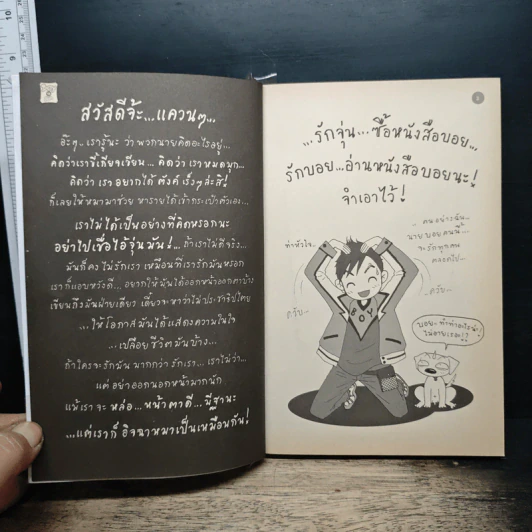 สวัสดีจ้ะ...แควนๆ...
อ๊ะๆ...เรารู้นะ ว่าพวกนายคิดอะไรอยู่...
คิดว่าเราขี้เกียจเขียน... คิดว่า เราหมดมุก...
คิดว่า เราอยากได้ ตังค์ เร็วๆล่ะสิ!
ก็เลยให้หมามาช่วย หารายได้เข้ากระเป๋าตัวเอง...
เราไม่ได้เป็นอย่างที่คิดหรอกนะ
อย่าไปเชื่อไอ้จุ่นมัน!... ถ้าเราไม่ดีจริง...
มันก็คงไม่รักเรา เหมือนที่เรารักมันหรอก
เราก็แอบหวังดี... อยากให้มันได้ออกหน้าออกตาบ้าง
เขียนถึงมันฝ่ายเดียว เดี๋ยวจะหาว่าไม่ประชาธิปไตย
...ให้โอกาสมันได้แสดงความในใจ
...เปลือยชีวิตมันบ้าง...
ถ้าใครจะรักมัน มากกว่า รักเรา... เราไม่ว่า...
แต่ อย่าออกนอกหน้ามากนัก
แม้เราจะ หล่อ...หน้าตาดี...มีฐานะ
...แต่เราก็ อิจฉาหมาเป็นเหมือนกัน!
...รักจุ่น...ซื้อหนังสือบอย...
รักบอย...อ่านหนังสือบอยนะ!
จำเอาไว้!
ทำหัวใจ..
คนอย่างฉัน..
นายบอยคนนี้...
จะรักทุกคน
ตลอดไป...
ควับ..
ควับ..
BOY
บอย..ทำท่าอะไรน่ะ
ไม่อายเรอะ!?